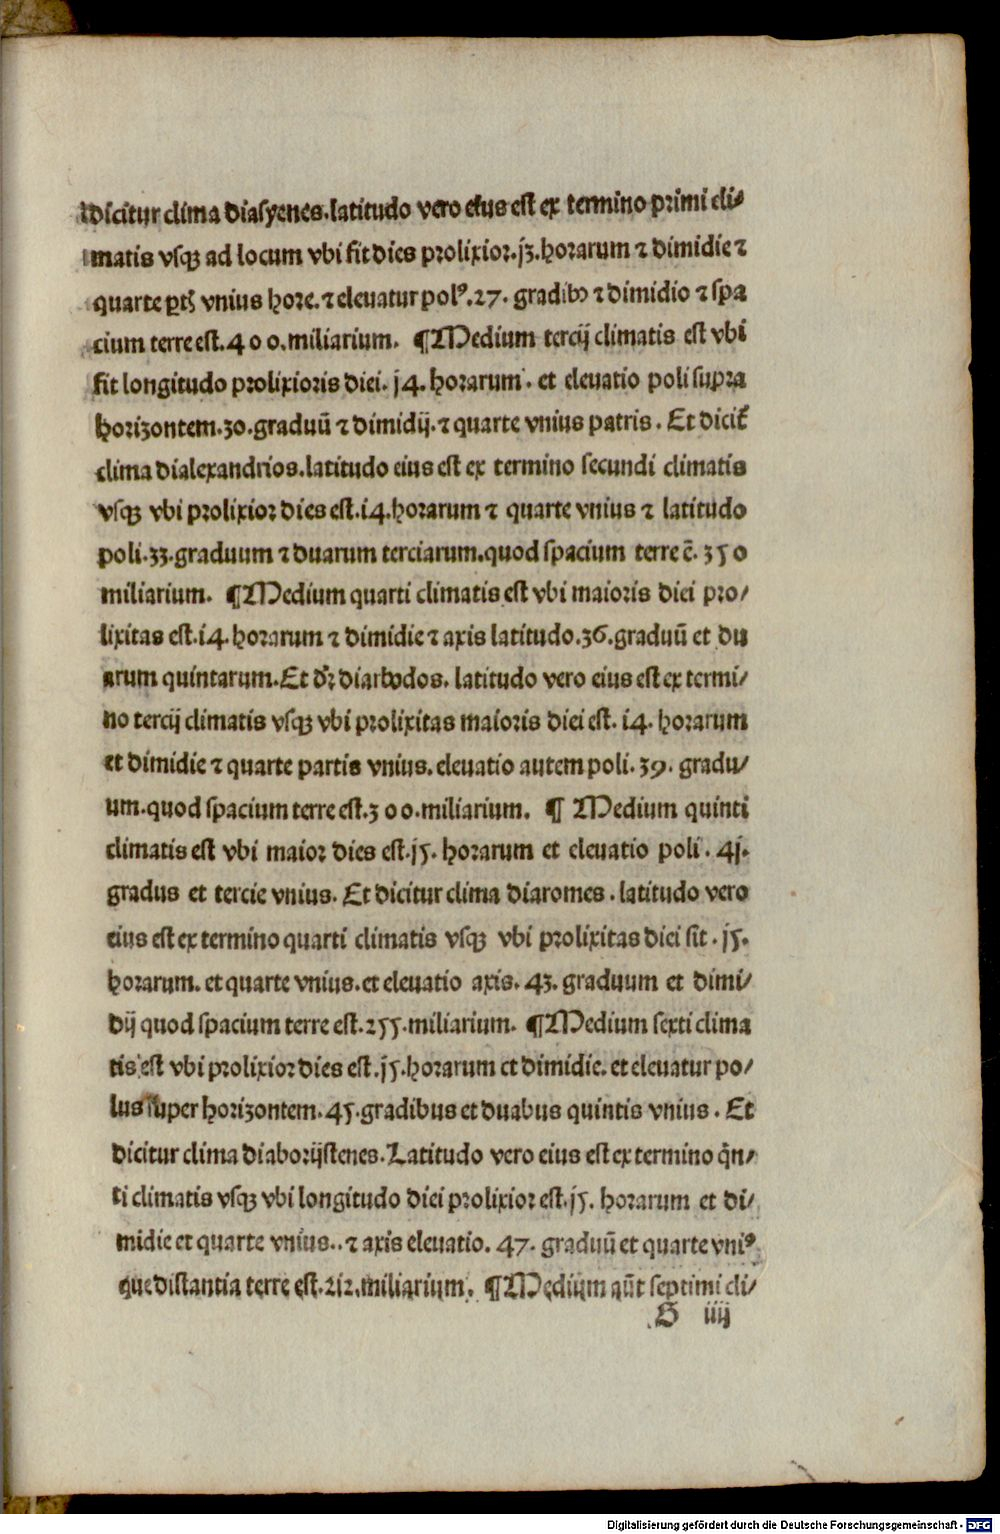 dicitur clima diasyenes.latitudo vero eius est ex termino primi cli⸗
matis vsqꝫ ad locum vbi fit dies prolixior.j3.horarum ⁊ dimidie ⁊
quarte ꝑtꝭ vnius hore.⁊ eleuatur polꝰ.27. gradibꝰ ⁊ dimidio ⁊ spa
cium terre est.400.miliarium. ¶Medium tercij climatis est vbi
fit longitudo prolixioris diei.j4.horarum. et eleuatio poli supra
horizontem.30.graduū ⁊ dimidij.⁊ quarte vnius patris. Et dicit᷑
clima dialexandrios.latitudo eius est ex termino secundi climatis
vsqꝫ vbi prolixior dies est.i4.horarum ⁊ quarte vnius ⁊ latitudo
poli.33.graduum ⁊ duarum terciarum.quod spacium terre ē.350
miliarium. ¶Medium quarti climatis est vbi maioris diei pro⸗
lixitas est.i4.horarum ⁊ dimidie ⁊ axis latitudo.36.graduū et du
arum quintarum.Et dr̄ diarhodos. latitudo vero eius est ex termi⸗
no tercij climatis vsqꝫ vbi prolixitas maioris diei est. i4. horarum
et dimidie ⁊ quarte partis vnius.eleuatio autem poli.39. gradu⸗
um.quod spacium terre est.300.miliarium. ¶ Medium quinti
climatis est vbi maior dies est.j5. horarum et eleuatio poli. 4j.
gradus et tercie vnius. Et dicitur clima diaromes.latitudo vero
eius est ex termino quarti climatis vsqꝫ vbi prolixitas diei sit.j5.
horarum.et quarte vnius.et eleuatio axis.43.graduum et dimi⸗
dij quod spacium terre est.255.miliarium. ¶Medium sexti clima
tis est vbi prolixior dies est.j5.horarum et dimidie.et eleuatur po⸗
lus super horizontem.45.gradibus et duabus quintis vnius. Et
dicitur clima diaborijstenes.Latitudo vero eius est ex termino qͥn⸗
ti climatis vsqꝫ vbi longitudo diei prolixior est.j5. horarum et di⸗
midie et quarte vnius..⁊ axis eleuatio. 47. graduū et quarte vniꝰ
que distantia terre est.2i2.miliarium. ¶Medium aūt septimi cli⸗
G iiij
Digitalisierung gefördert durch die Deutsche Forschungsgemeinschaft - DFG